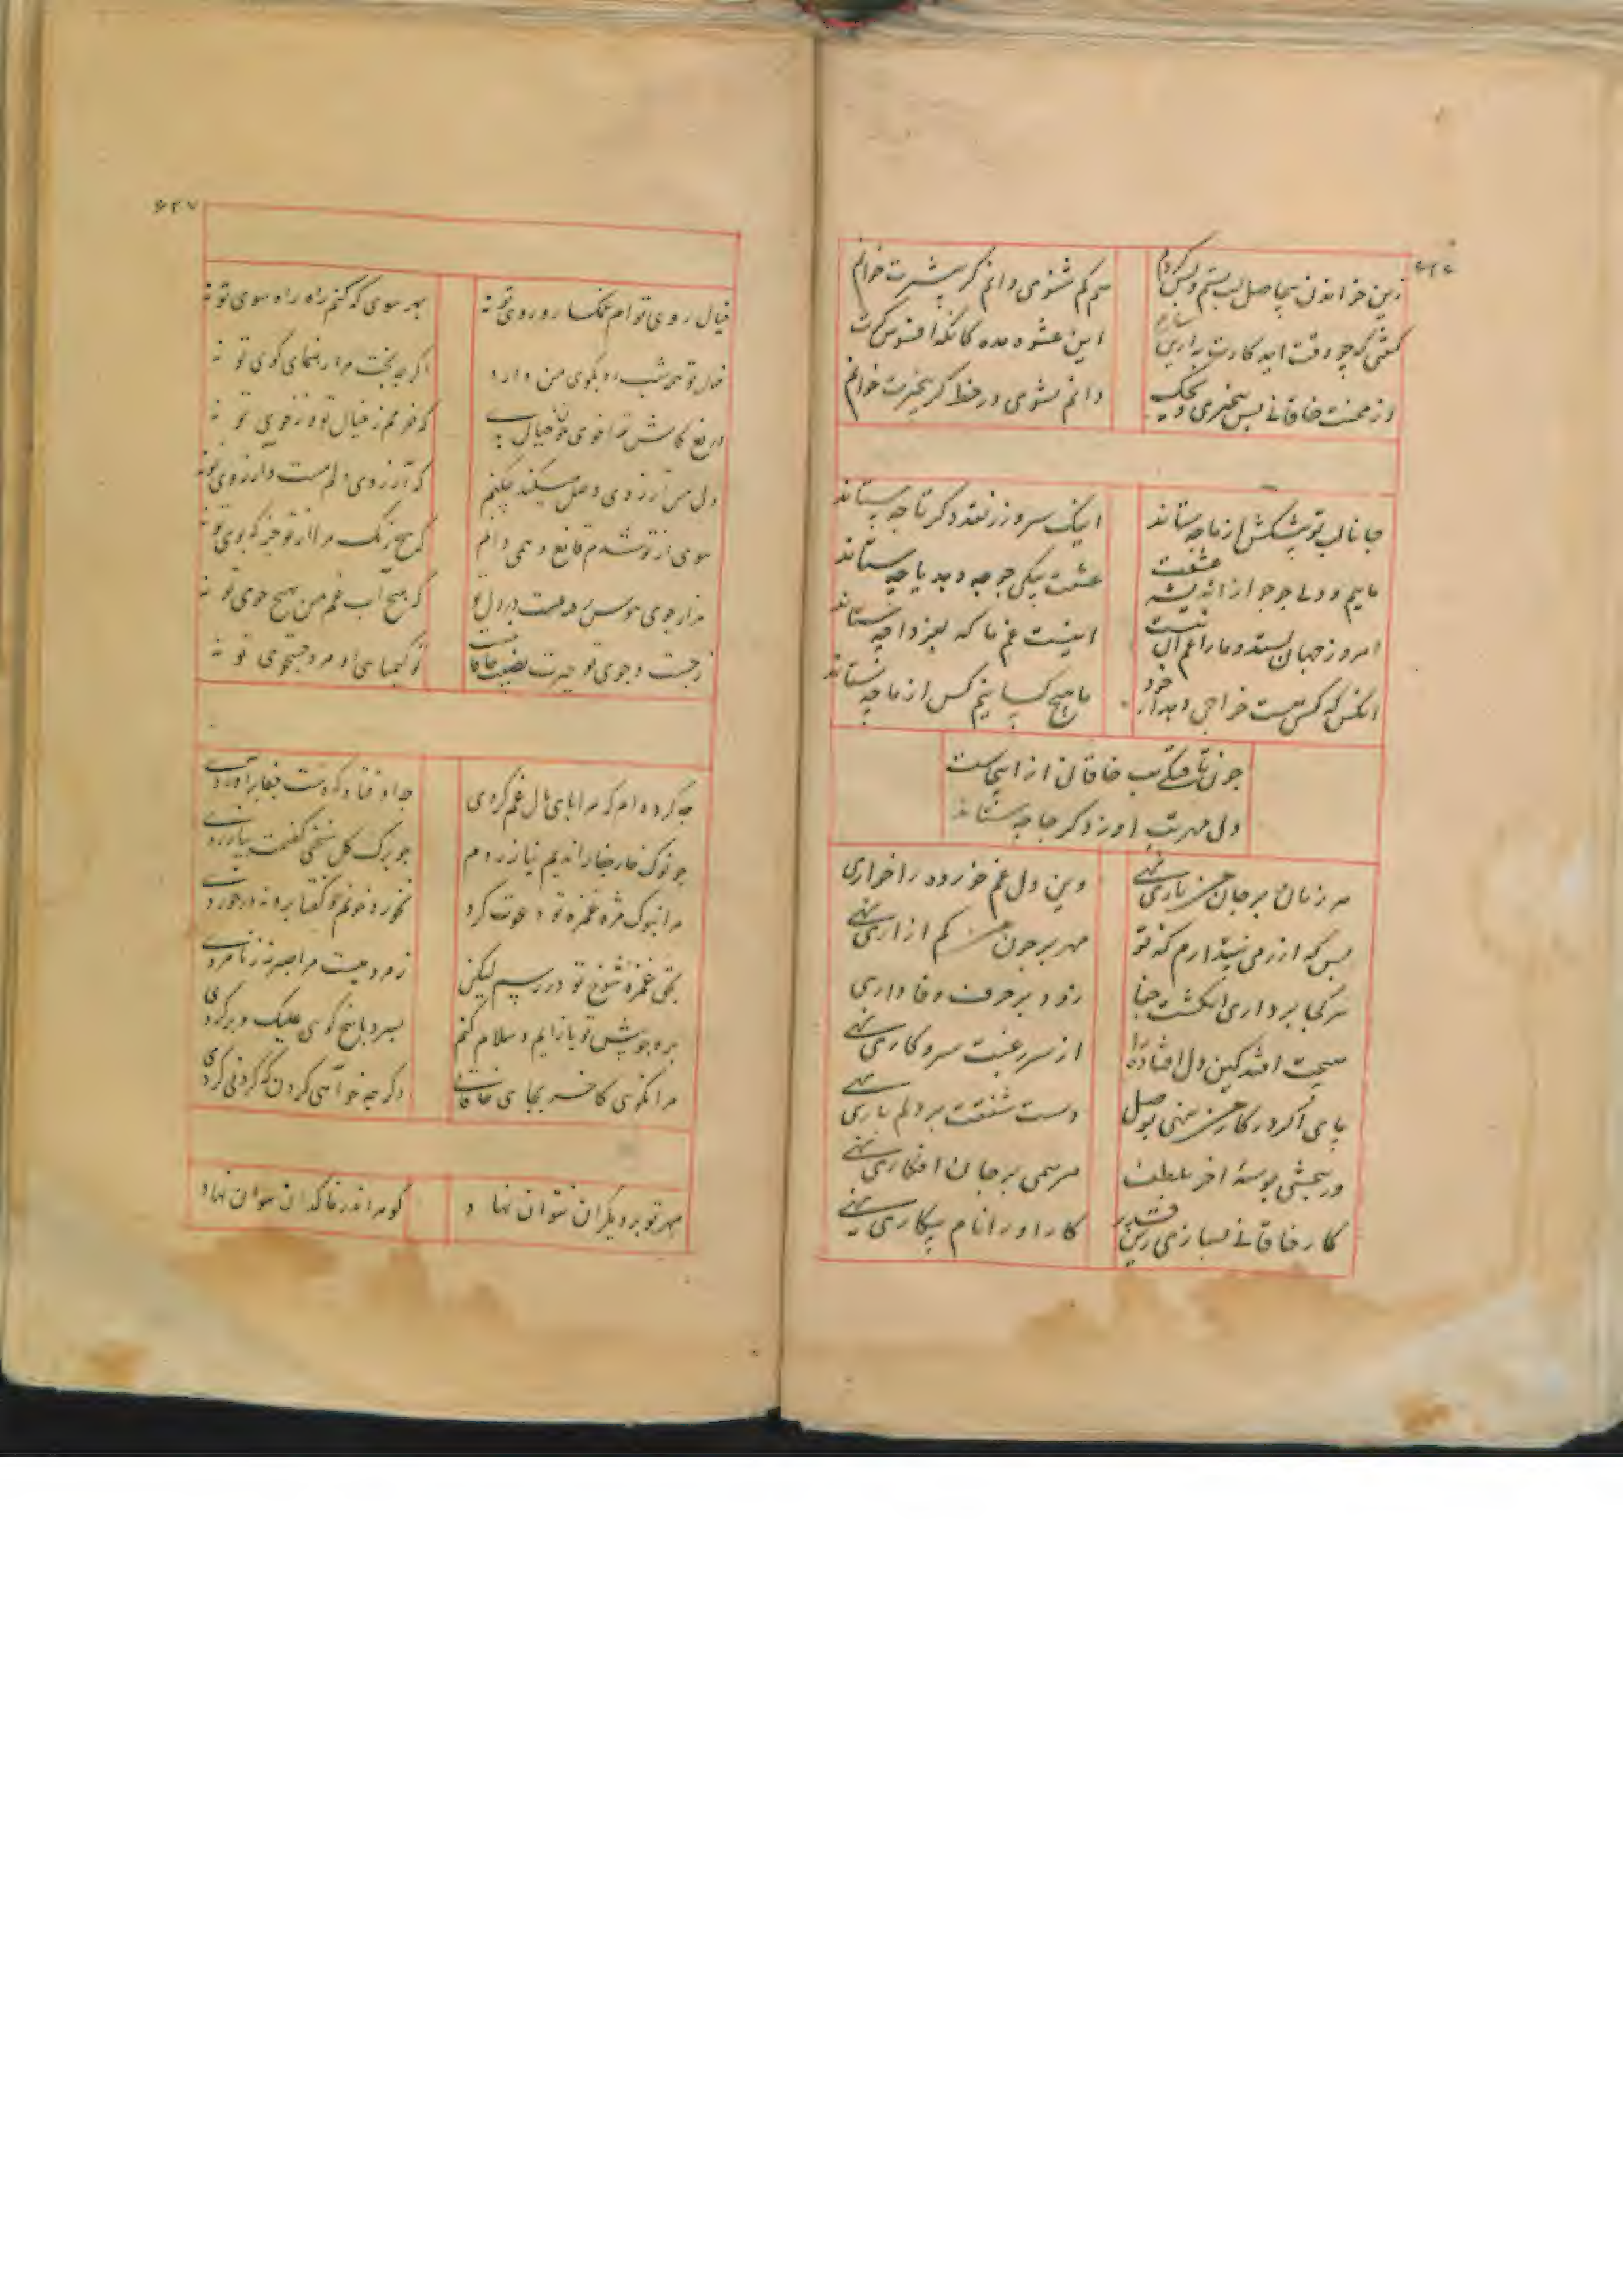 زین خواندن بیحاصل لب بستم و بس کردم
هم کم شنوی دانم گر بیشترت خوانم
گفتی که چو وقت آید کارت به ازین سازم
این عشوه مده کانگه افسوس گرت خوانم
وز محنت خاقانی بس بیخبری ویحک
دانم نشوی در خط گر بیخبرت خوانم
جانا لب تو پیشکش از ما چه ستاند
اینک سر و زر نقد دگر تا چه ستاند
ماییم و دلی جو جو از اندیشه عشقت
عشقت بیکی جو چه دهد یا چه ستاند
امروز جهان بستد و ما را غم آن نیست
اینست غم ما که بفردا چه ستاند
آنکس که کس است خراجی دهد از خود
ما هیچ کسانیم کس از ما چه ستاند
خاقانی از اینجاست
دلی مهر تب او زد گر جا چه ستاند
هر زمان بر جان من باری نهی
وین دل غم خورده را خواری
بس که از زمی نپندارم که تو
مهر بر چون من کم ازاری نهی
هر کجا برداری انگشت جفا
زود بر حرف وفاداری
هیچت افتد کین دل افتاده را
از سر رغبت سر و کاری نهی
پای اگر در کار من ننهی بوصل
دست شفقت بر دلم باری نهی
ور نبخشی بوسهٔ آخر بلطف
مرهمی بر جان افگاری نهی
کار خاقانی نسازی زین قدر
کار او را نام بیکاری نهی
۶۲۷
خیال روی توام غمگسار و روی تو نه
بهر سوی که کنم راه راه سوی تو نه
خیال تو همه شب ره بکوی من دارد
اگر چه بخت مرا رهنمای کوی تو نه
دریغ کاش ترا خوی چون خیال بدی
که خرمم ز خیال تو و ز خوی تو نه
دلی من آرزوی وصل میکند چکنم
که آرزوی دلم هست و آرزوی تو نه
بوی از تو شدم قانع و همی دانم
که هیچ رنگ مرا از تو جز که بوی تو نه
هزار جوی هوس رفته است در دل تو
که هیچ آب غم من بهیچ جوی تو نه
ز جست و جوی تو حیرت نصیب خاقانیست
تو کیمیای و او مرد جستجوی تو نه
چه کرده ام که مرا پای مال غم کردی
چه اوفتاد که دست جفا برآوردی
چو نوک خار جفا راندیم نیازردم
چو برگ گل سخنی گفتمت بیازردی
مرا بنوک مژه غمزه تو دعوت کرد
بخورد خونم و گفتا برو نه در خوردی
بحق غمزه شوخ تو در رسم لیکن
ز مردمیست مرا صبر نه ز نامردی
بره چو پیش تو بازآیم و سلام کنم
بسرد پاسخ گویی علیک و برگردی
مرا نگویی کاخر بجای خاقانی
دگر چه خواهی کردن که کردنی کردی
مهر تو بر دیگران نتوان نهاد
گوهر اندر خاکدان نتوان نهاد